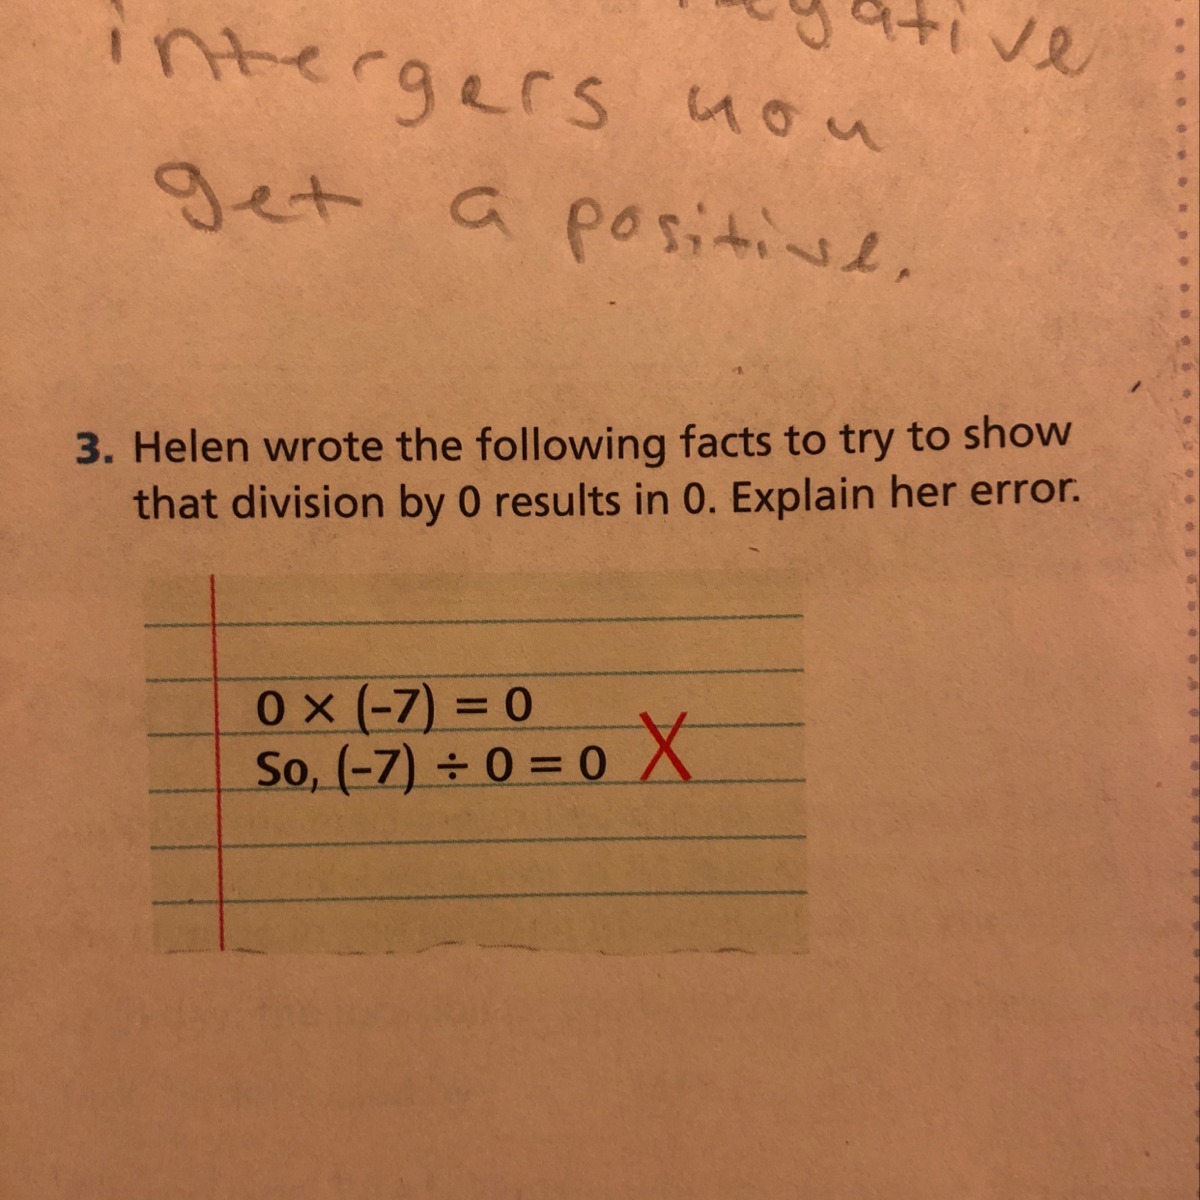 negative
intergers you
get a positive.
3. Helen wrote the following facts to try to show
that division by 0 results in 0. Explain her error.
0 × (-7) = 0
So, (-7) ÷ 0 = 0 X